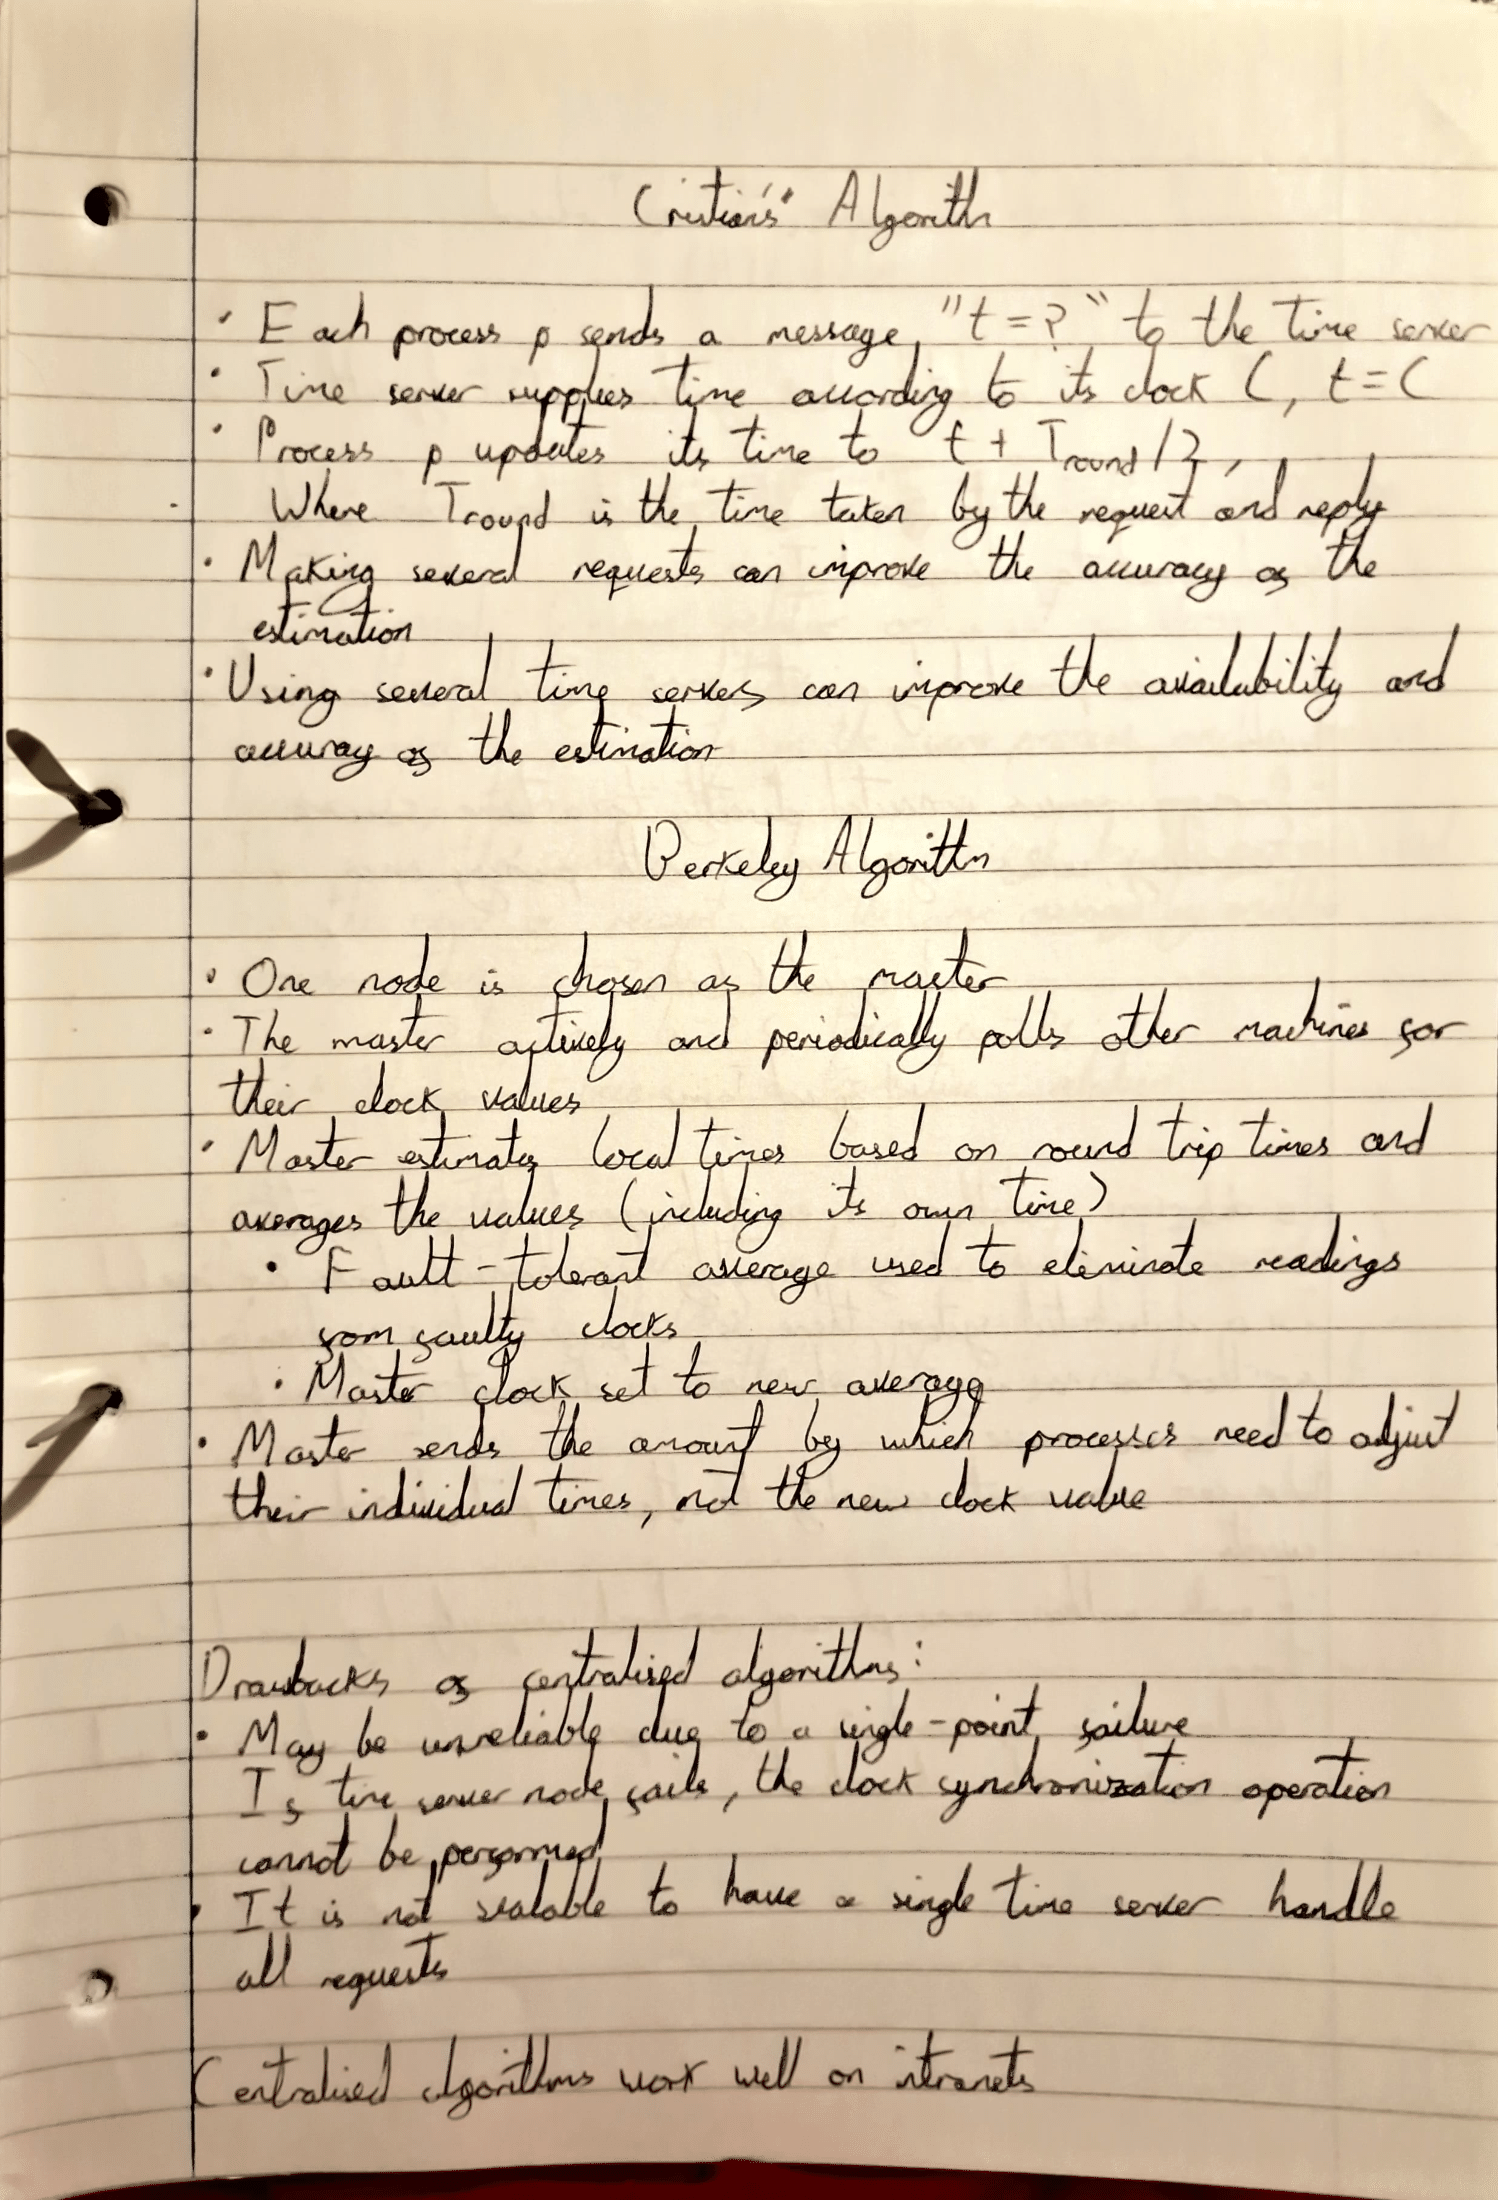 Cristian's Algorithm
• Each process p sends a message "t=?" to the time server
• Time server supplies time according to its clock C, t=C
• Process p updates its time to t + Tround/2,
Where Tround is the time taken by the request and reply
• Making several requests can improve the accuracy of the
estimation
• Using several time servers can improve the availability and
accuracy of the estimation
Berkeley Algorithm
• One node is chosen as the master
• The master actively and periodically polls other machines for
their clock values
• Master estimates local times based on round trip times and
averages the values (including its own time)
• Fault-tolerant average used to eliminate readings
from faulty clocks
• Master clock set to new average
• Master sends the amount by which processes need to adjust
their individual times, not the new clock value
Drawbacks of centralised algorithms:
• May be unreliable due to a single-point failure
If time server node fails, the clock synchronization operation
cannot be performed
• It is not scalable to have a single time server handle
all requests
Centralised algorithms work well on intranets